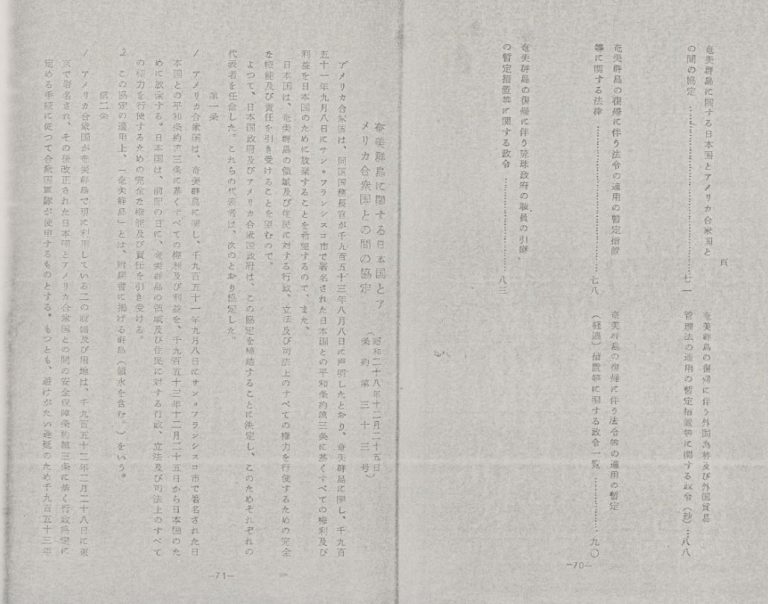 頁
奄美群島に関する日本国とアメリカ合衆国と
の間の協定 …………………… 七一
奄美群島の復帰に伴う法令の適用の暫定措置
等に関する法律 …………………… 七八
奄美群島の復帰に伴う琉球政府の職員の引継
の暫定措置等に関する政令 …………………… 八三
奄美群島の復帰に伴う外国為替及び外国貿易
管理法の適用の暫定措置等に関する政令(抄)…八八
奄美群島の復帰に伴う法令等の適用の暫定
(経過)措置等に関する政令一覧 …………… 九〇
—70—
奄美群島に関する日本国とア
メリカ合衆国との間の協定
(昭和二十八年十二月二十五日
条約第三十三号)
アメリカ合衆国は、同国国務長官が千九百五十三年八月八日に声明したとおり、奄美群島に関し、千九百
五十一年九月八日にサン・フランシスコ市で署名された日本国との平和条約第三条に基くすべての権利及び
利益を日本国のために放棄することを希望するので、また、
日本国は、奄美群島の領域及び住民に対する行政、立法及び司法上のすべての権力を行使するための完全
な権能及び責任を引き受けることを望むので、
よつて、日本国政府及びアメリカ合衆国政府は、この協定を締結することに決定し、このためそれぞれの
代表者を任命した。これらの代表者は、次のとおり協定した。
第一条
1 アメリカ合衆国は、奄美群島に関し、千九百五十一年九月八日にサン・フランシスコ市で署名された日
本国との平和条約第三条に基くすべての権利及び利益を、千九百五十三年十二月二十五日から日本国のた
めに放棄する。日本国は、前記の日に、奄美群島の領域及び住民に対する行政、立法及び司法上のすべて
の権力を行使するための完全な権能及び責任を引き受ける。
2 この協定の適用上、「奄美群島」とは、附属書に掲げる群島(領水を含む。)をいう。
第二条
1 アメリカ合衆国が奄美群島で現に利用している二の設備及び用地は、千九百五十二年二月二十八日に東
京で署名され、その後改正された日本国とアメリカ合衆国との間の安全保障条約第三条に基く行政協定に
定める手続に従つて合衆国軍隊が使用するものとする。もつとも、避けがたい遅延のため千九百五十三年
—71—